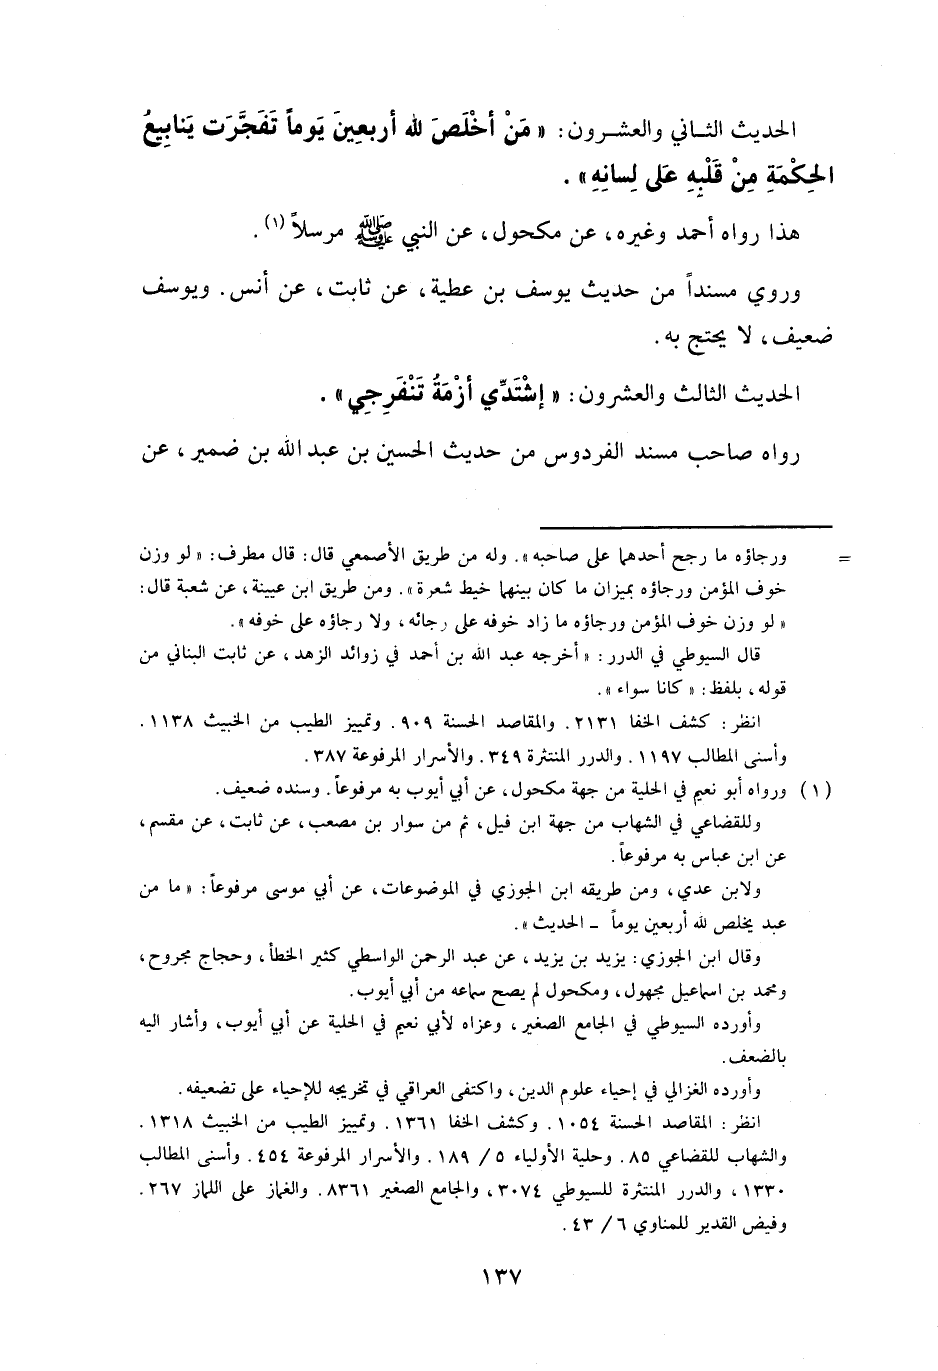 الحديث الثـاني والعشـرون: « مَنْ أخْلَصَ لله أربعِينَ يَوماً تَفَجَّرَت يَنابِيعُ
الحِكْمَةِ مِنْ قَلْبِهِ عَلى لِسانِهِ» .
هذا رواه أحمد وغيره، عن مكحول، عن النبي ﷺ مرسلاً (١) .
وروي مسنداً من حديث يوسف بن عطية، عن ثابت، عن أنس. ويوسف
ضعيف، لا يحتج به.
الحديث الثالث والعشرون: « إشْتَدِّي أزْمَةُ تَنْفَرِجِي» .
رواه صاحب مسند الفردوس من حديث الحسين بن عبد الله بن ضمير، عن
= ورجاؤه ما رجح أحدهما على صاحبه». وله من طريق الأصمعي قال: قال مطرف: « لو وزن
خوف المؤمن ورجاؤه بميزان ما كان بينهما خيط شعرة». ومن طريق ابن عيينة، عن شعبة قال:
« لو وزن خوف المؤمن ورجاؤه ما زاد خوفه على رجائه، ولا رجاؤه على خوفه».
قال السيوطي في الدرر: « أخرجه عبد الله بن أحمد في زوائد الزهد، عن ثابت البناني من
قوله، بلفظ: « كانا سواء».
انظر: كشف الخفا ٢١٣١. والمقاصد الحسنة ٩٠٩. وتمييز الطيب من الخبيث ١١٣٨.
وأسنى المطالب ١١٩٧. والدرر المنتثرة ٣٤٩. والأسرار المرفوعة ٣٨٧.
(١) ورواه أبو نعيم في الحلية من جهة مكحول، عن أبي أيوب به مرفوعاً. وسنده ضعيف.
وللقضاعي في الشهاب من جهة ابن فيل، ثم من سوار بن مصعب، عن ثابت، عن مقسم،
عن ابن عباس به مرفوعاً.
ولابن عدي، ومن طريقه ابن الجوزي في الموضوعات، عن أبي موسى مرفوعاً: « ما من
عبد يخلص لله أربعين يوماً ـ الحديث».
وقال ابن الجوزي: يزيد بن يزيد، عن عبد الرحمن الواسطي كثير الخطأ، وحجاج مجروح،
ومحمد بن اسماعيل مجهول، ومكحول لم يصح سماعه من أبي أيوب.
وأورده السيوطي في الجامع الصغير، وعزاه لأبي نعيم في الحلية عن أبي أيوب، وأشار اليه
بالضعف.
وأورده الغزالي في إحياء علوم الدين، واكتفى العراقي في تخريجه للإحياء على تضعيفه.
انظر: المقاصد الحسنة ١٠٥٤. وكشف الخفا ١٣٦١. وتمييز الطيب من الخبيث ١٣١٨.
والشهاب للقضاعي ٨٥. وحلية الأولياء ٥/ ١٨٩. والأسرار المرفوعة ٤٥٤. وأسنى المطالب
١٣٣٠، والدرر المنتثرة للسيوطي ٣٠٧٤، والجامع الصغير ٨٣٦١. والغماز على اللماز ٢٦٧.
وفيض القدير للمناوي ٦/ ٤٣.
١٣٧